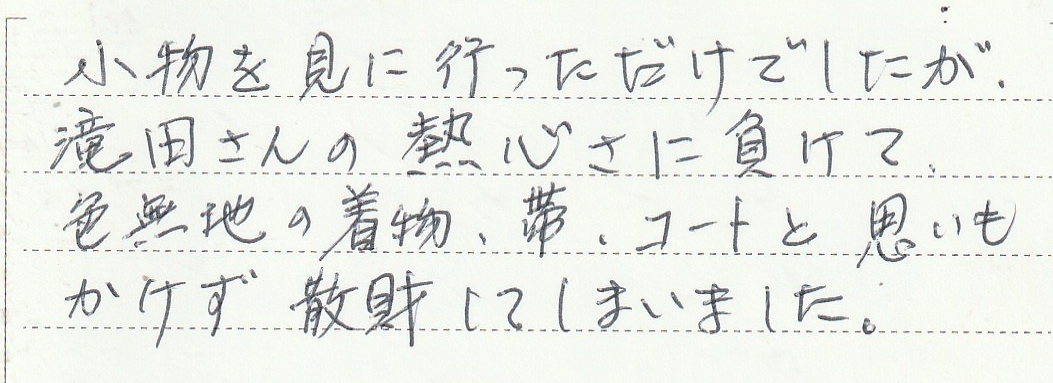 小物を見に行っただけでしたが、
滝田さんの熱心さに負けて、
色無地の着物、帯、コートと思いも
かけず散財してしまいました。